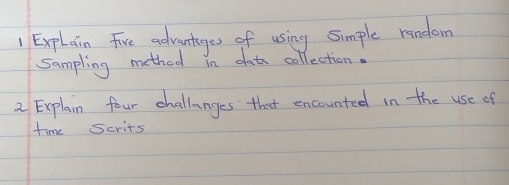 1 Explain Five advantages of using Simple random
Sampling method in data collection.
2 Explain four challanges that encounted in the use of
time Serits